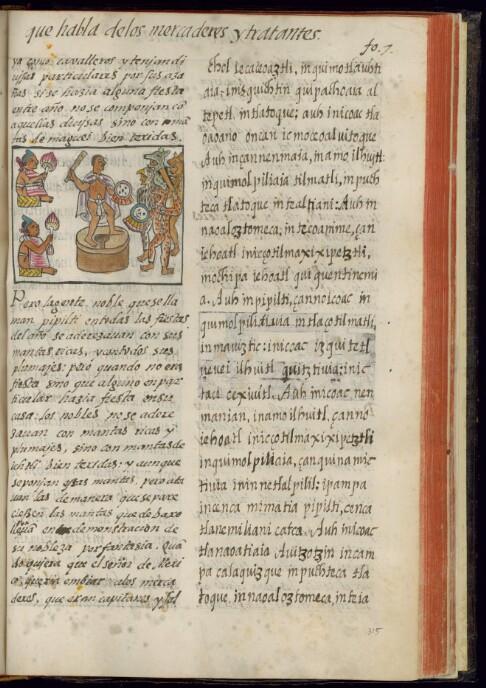 que habla delos mercaderes y tratantes.
fo. 7.
ya como cavalleros y tenian di
uisas particulares por sus aza
ñas si se hazia alguna fiesta
entre año no se componian cō
aquellas deuysas sino con mā
tas de maguey bien texidas.
Pero la gente noble que se lla
man pipilti en todas las fiestas
del año se adereçauan con sus
mantas ricas, y con todos sus
plumajes: pero quando no era
fiesta sino que alguno en par
ticular hazia fiesta en su
casa: los nobles no se adere
zauan con mantas ricas y
plumajes, sino con mantas de
ichtli bien texidas: y aunque
se ponian estas mantas, pero ata
uan las de manera que se pare
ciessen las mantas que de baxo
lleuā en demonstracion de
su nobleza por fantasia. Quā
do quiera que el señor de Mexi
co queria embiar alos merca
deres, que eran capitanes y sol
in quimotlauhti
aia: ixquichtin quipalhoaia al
tepetl, in tlatoque: auh inicoac tla
oaoano oncan icmocoaluitoque
Auh in çan nenmaia, in amo ilhuitl:
in quimolpiliaia tilmatli, in puch
teca tlatoque in tealtiani: Auh in
naoaloztomeca, in tecoanime, çan
iehoatl iniccotilmaxixipetztli,
mochipa iehoatl quiquentinemi
a. Auh in pipilti, çan no icoac in
quimolpiliaia in tlaçotilmatli,
in mauiztic: inicoac izquitetl
veuei ilhuitl quitztiuia: inic
tacic cexiuitl. Auh inicoac nen
manian, in amo ilhuitl, çan no
iehoatl iniccotilmaxixipetztli
in quimolpiliaia, çan quinamic
tiuia in innetlalpilil: ipampa
in cenca mimatia pipilti, cenca
tlanemiliani catca. Auh inicoac
tlanaoatiaia Auitzotzin in cam
pa calaquizque in puchteca tla
toque, in naoaloztomeca, intzia
315